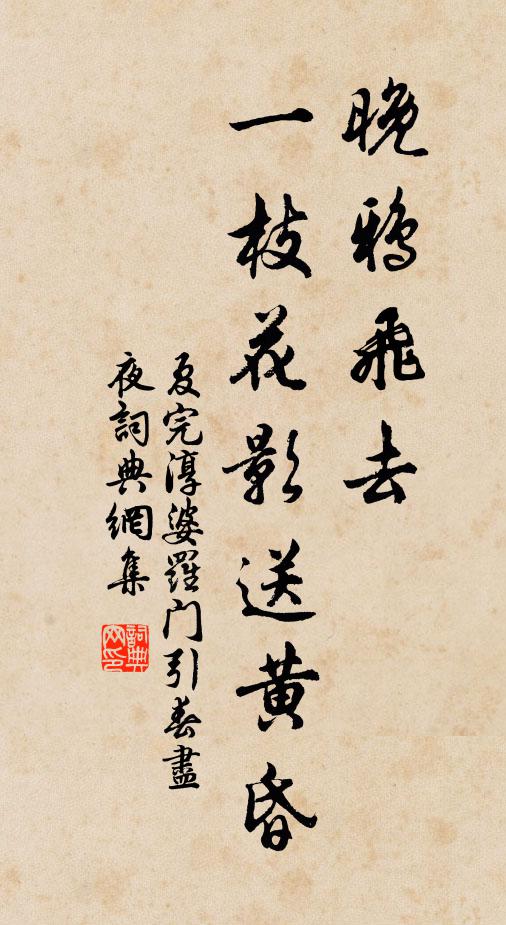 晚鴉飛去
一枝花影送黄昏
夏完淳婆羅门引春盡
夜詞典網集
詞典
网印